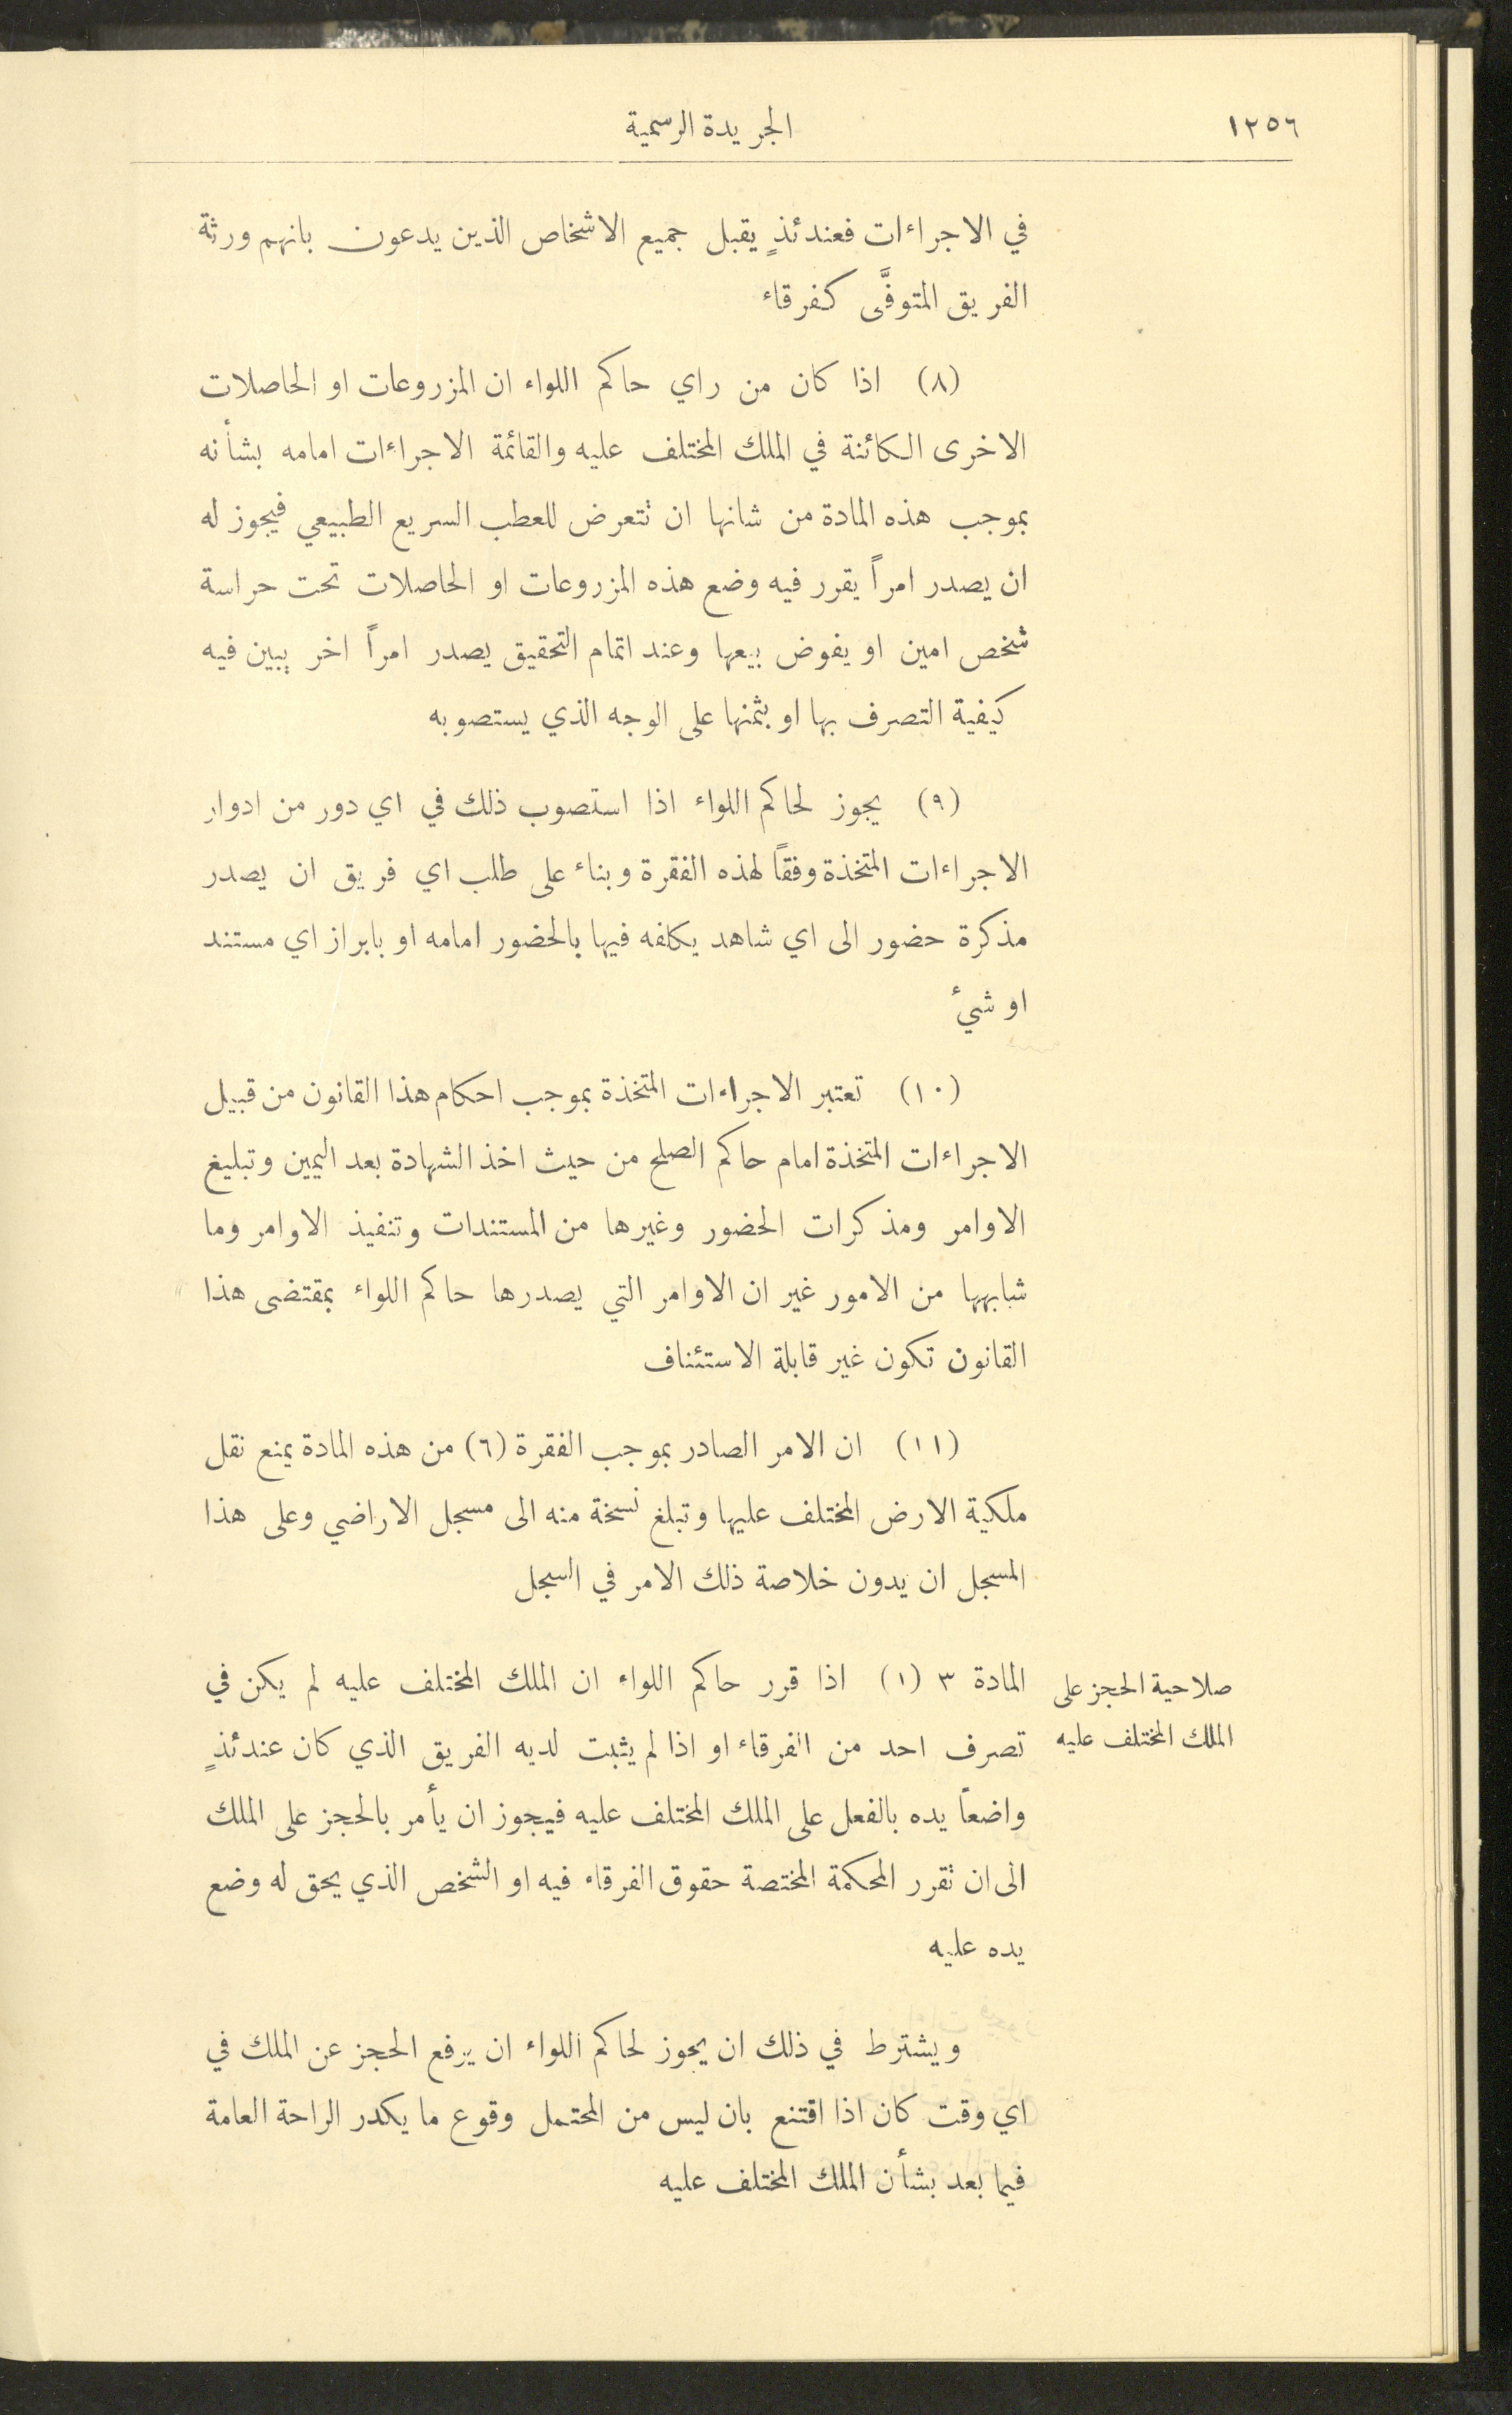 ١٢٥٦
الجريدة الرسمية
في الاجراءات فعندئذٍ يقبل جميع الاشخاص الذين يدعون بانهم ورثة
الفريق المتوفَّى كفرقاء
(٨) اذا كان من راي حاكم اللواء ان المزروعات او الحاصلات
الاخرى الكائنة في الملك المختلف عليه والقائمة الاجراءات امامه بشأنه
بموجب هذه المادة من شانها ان تتعرض للعطب السريع الطبيعي فيجوز له
ان يصدر امراً يقرر فيه وضع هذه المزروعات او الحاصلات تحت حراسة
شخص امين او يفوض بيعها وعند اتمام التحقيق يصدر امراً اخر يبين فيه
كيفية التصرف بها او بثمنها على الوجه الذي يستصوبه
(٩) يجوز لحاكم اللواء اذا استصوب ذلك في اي دور من ادوار
الاجراءات المتخذة وفقاً لهذه الفقرة وبناء على طلب اي فريق ان يصدر
مذكرة حضور الى اي شاهد يكلفه فيها بالحضور امامه او بابراز اي مستند
او شئ
(١٠) تعتبر الاجراءات المتخذة بموجب احكام هذا القانون من قبيل
الاجراءات المتخذة امام حاكم الصلح من حيث اخذ الشهادة بعد اليمين وتبليغ
الاوامر ومذكرات الحضور وغيرها من المستندات وتنفيذ الاوامر وما
شابهها من الامور غير ان الاوامر التي يصدرها حاكم اللواء بمقتضى هذا
القانون تكون غير قابلة الاستئناف
(١١) ان الامر الصادر بموجب الفقرة (٦) من هذه المادة يمنع نقل
ملكية الارض المختلف عليها وتبلغ نسخة منه الى مسجل الاراضي وعلى هذا
المسجل ان يدون خلاصة ذلك الامر في السجل
صلاحية الحجز على
الملك المختلف عليه
المادة ٣ (١) اذا قرر حاكم اللواء ان الملك المختلف عليه لم يكن في
تصرف احد من الفرقاء او اذا لم يثبت لديه الفريق الذي كان عندئذٍ
واضعاً يده بالفعل على الملك المختلف عليه فيجوز ان يأمر بالحجز على الملك
الى ان تقرر المحكمة المختصة حقوق الفرقاء فيه او الشخص الذي يحق له وضع
يده عليه
ويشترط في ذلك ان يجوز لحاكم اللواء ان يرفع الحجز عن الملك في
اي وقت كان اذا اقتنع بان ليس من المحتمل وقوع ما يكدر الراحة العامة
فيما بعد بشأن الملك المختلف عليه